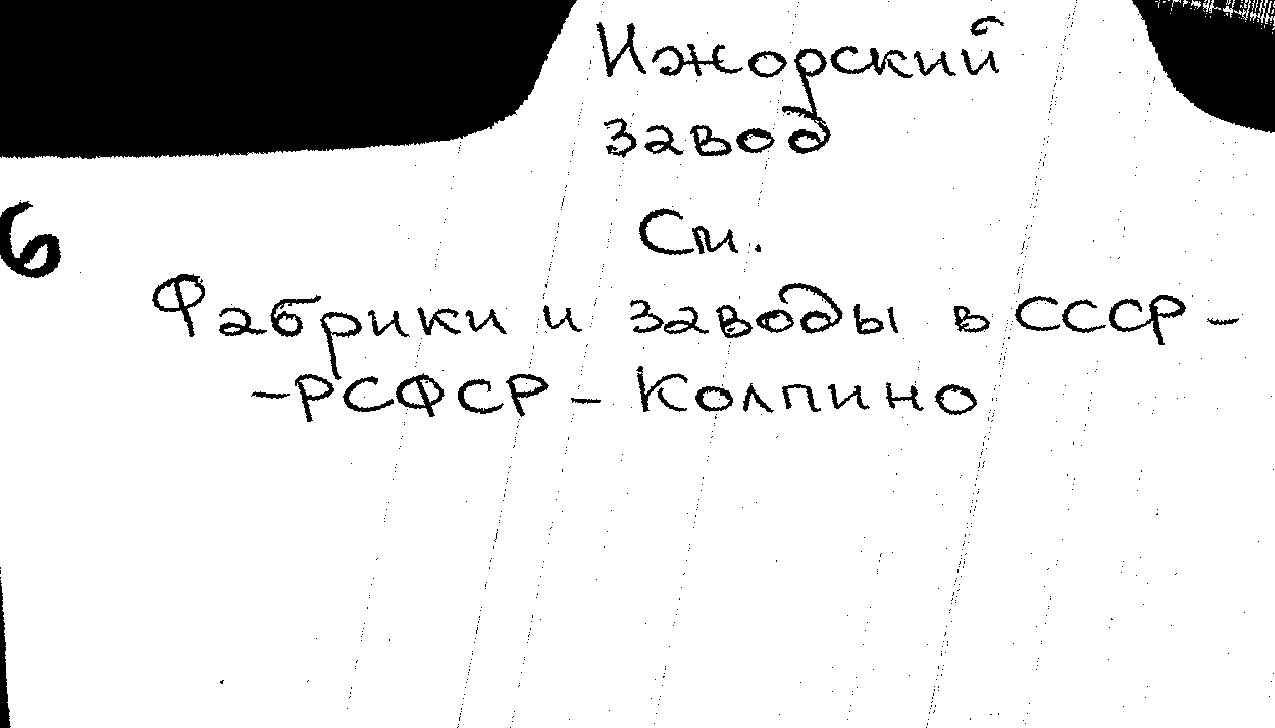 Ижорский
завод
См.
6
Фабрики и заводы в СССР -
- РСФСР - Колпино